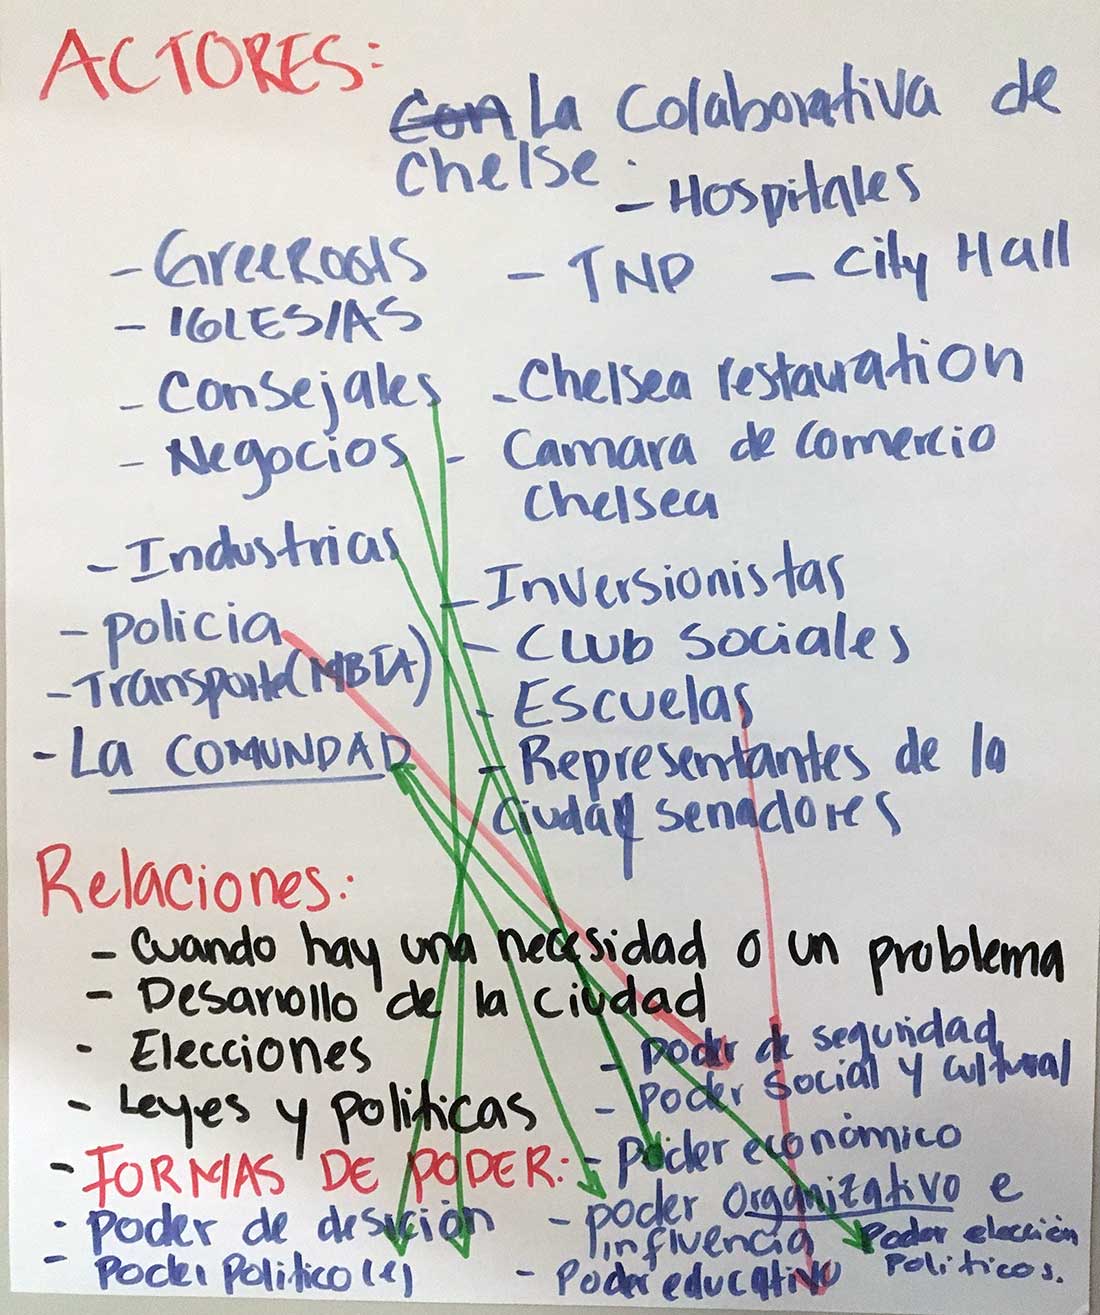 ACTORES:
Con La Colaborativa de
Chelse.
- Hospitales
- GreeRoots
- TND
- City Hall
- IGLESIAS
- Consejales
- Chelsea restauration
- Negocios
- Camara de Comercio
Chelsea
- Industrias
- Inversionistas
- policia
- Club Sociales
- Transporte (MBTA)
- Escuelas
- La COMUNDAD
- Representantes de la
Ciudad y senadores
Relaciones:
- Cuando hay una necesidad o un problema
- Desarrollo de la Ciudad
- Elecciones
- Leyes y politicas
- poder de seguridad
- poder Social y cultural
- poder económico
- FORMAS DE PODER:
- poder Organizativo e
influencia
- poder de desición
- Poder Politico (e)
- Poder educativo
Poder elección
Politicos.